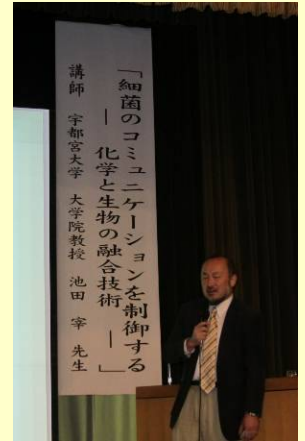 「細菌のコミュニケーションを制御する
― 化学と生物の融合技術 ―」
講師 宇都宮大学 大学院教授 池田 宰 先生